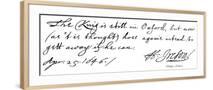 The King is still in Oxford, but now
(as 't is thought) hose againe intend to
gett away if he can.
Apr. 25: 1646/
H: Ireton/